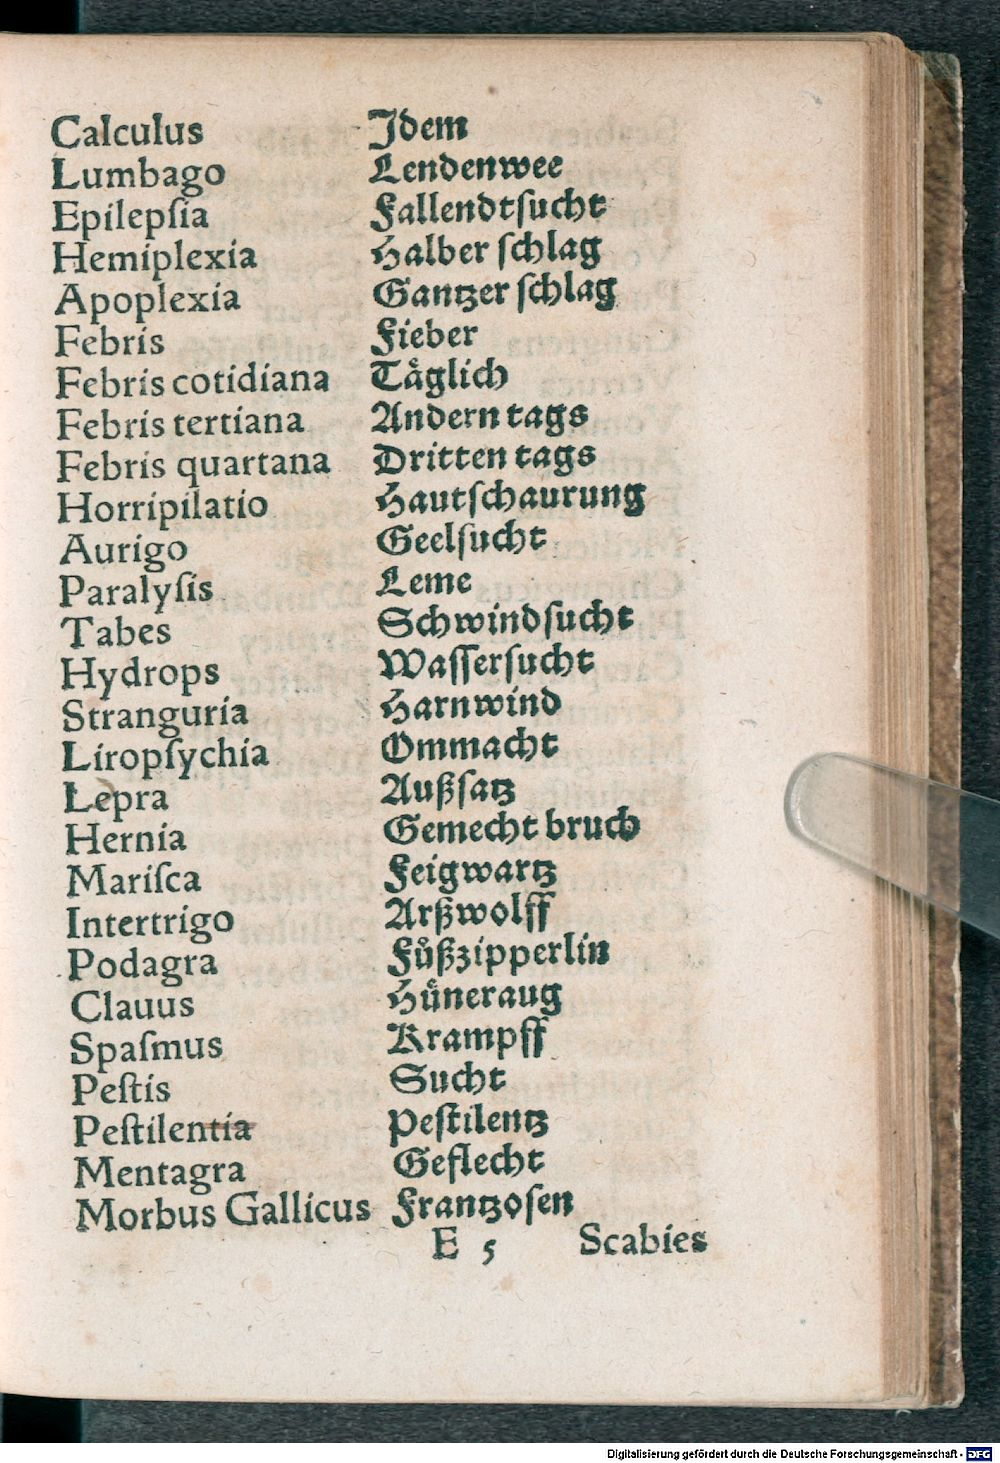 Calculus Idem
Lumbago Lendenwee
Epilepſia Fallendtſucht
Hemiplexia Halber ſchlag
Apoplexia Gantzer ſchlag
Febris Fieber
Febris cotidiana Taͤglich
Febris tertiana Andern tags
Febris quartana Dritten tags
Horripilatio Hautſchaurung
Aurigo Geelſucht
Paralyſis Leme
Tabes Schwindſucht
Hydrops Waſſerſucht
Stranguria Harnwind
Liropſychia Ommacht
Lepra Außſatz
Hernia Gemecht bruch
Mariſca Feigwartz
Intertrigo Arßwolff
Podagra Fuͦßzipperlin
Clauus Huͤneraug
Spaſmus Krampff
Peſtis Sucht
Peſtilentia Peſtilentz
Mentagra Geflecht
Morbus Gallicus Frantzoſen
E 5 Scabies
Digitalisierung gefördert durch die Deutsche Forschungsgemeinschaft - DFG